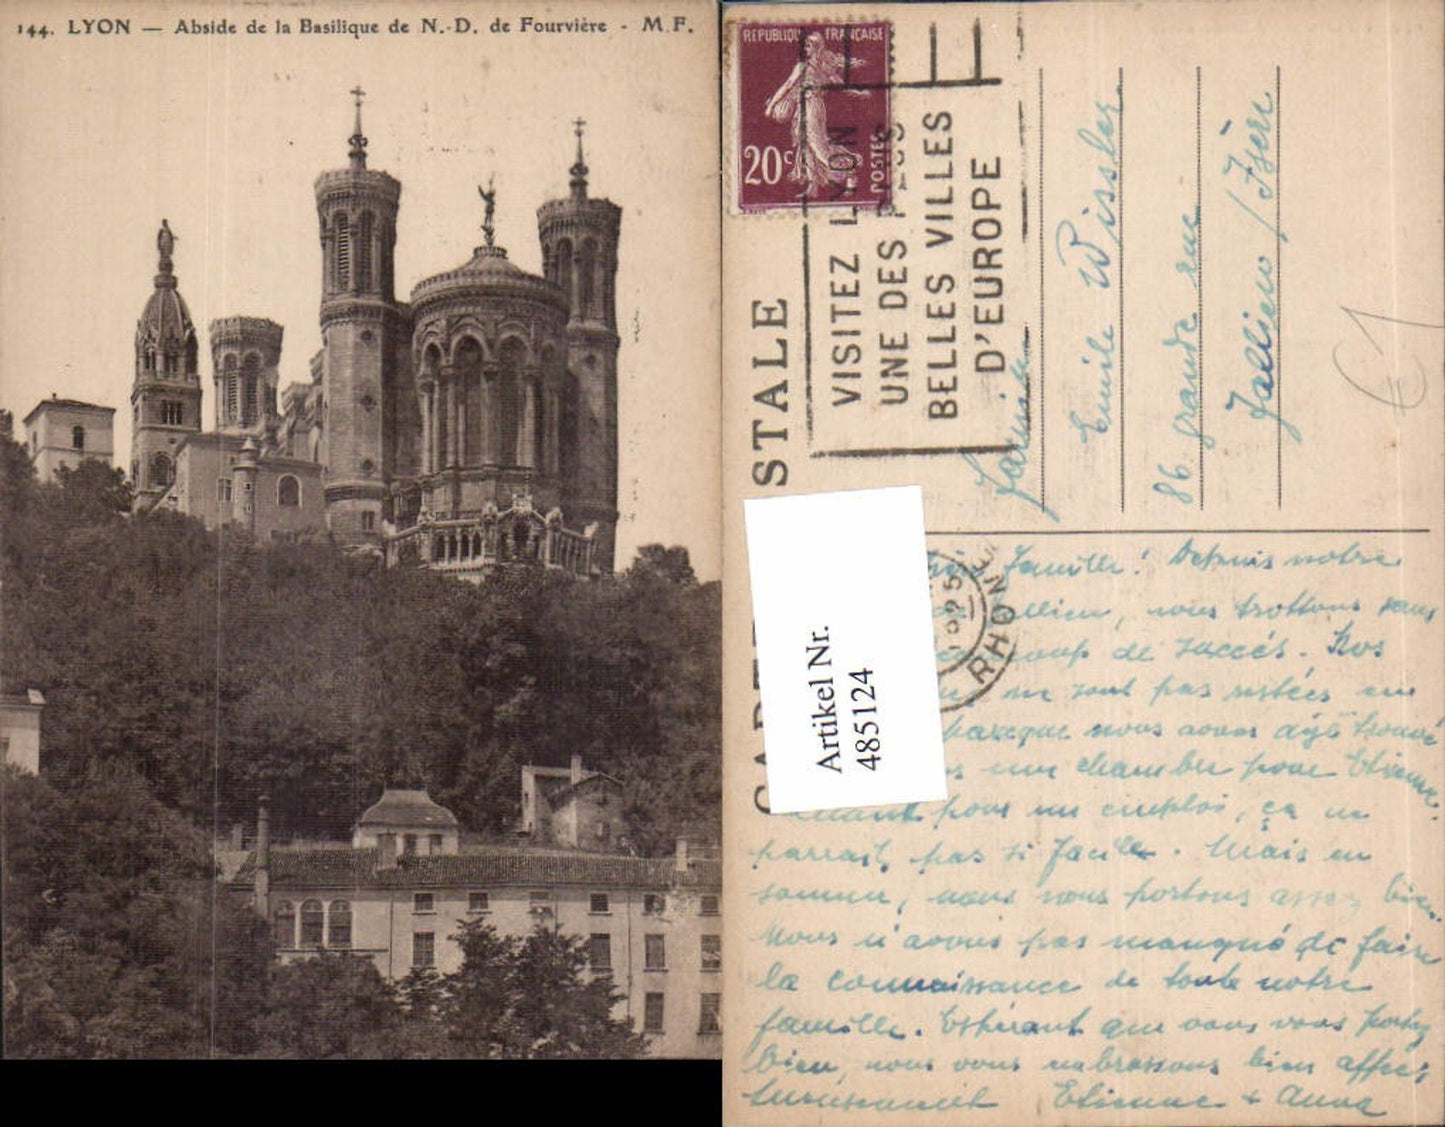 144. LYON — Abside de la Basilique de N.-D. de Fourvière - M F.
REPUBLIQUE FRANÇAISE
20c
POSTES
VISITEZ LYON
UNE DES PLUS
BELLES VILLES
D'EUROPE
STALE
RHONE
Artikel Nr.
485124
Emile Wissler
86 grande rue
Jallieu / Isère
€1
famille! Depuis notre
nous trottons sans
de succés. Nos
ne sont pas restées en
parceque nous avons déjà trouvé
une chambre pour Etienne.
pour un emploi, ça ne
parrait pas si facile. Mais en
somme, nous nous portons assez bien.
Nous n'avons pas manqué de faire
la connaissance de toute notre
famille. Espérant que vous vous portez
bien, nous vous embrassons bien affec-
tueusement Etienne + Anna